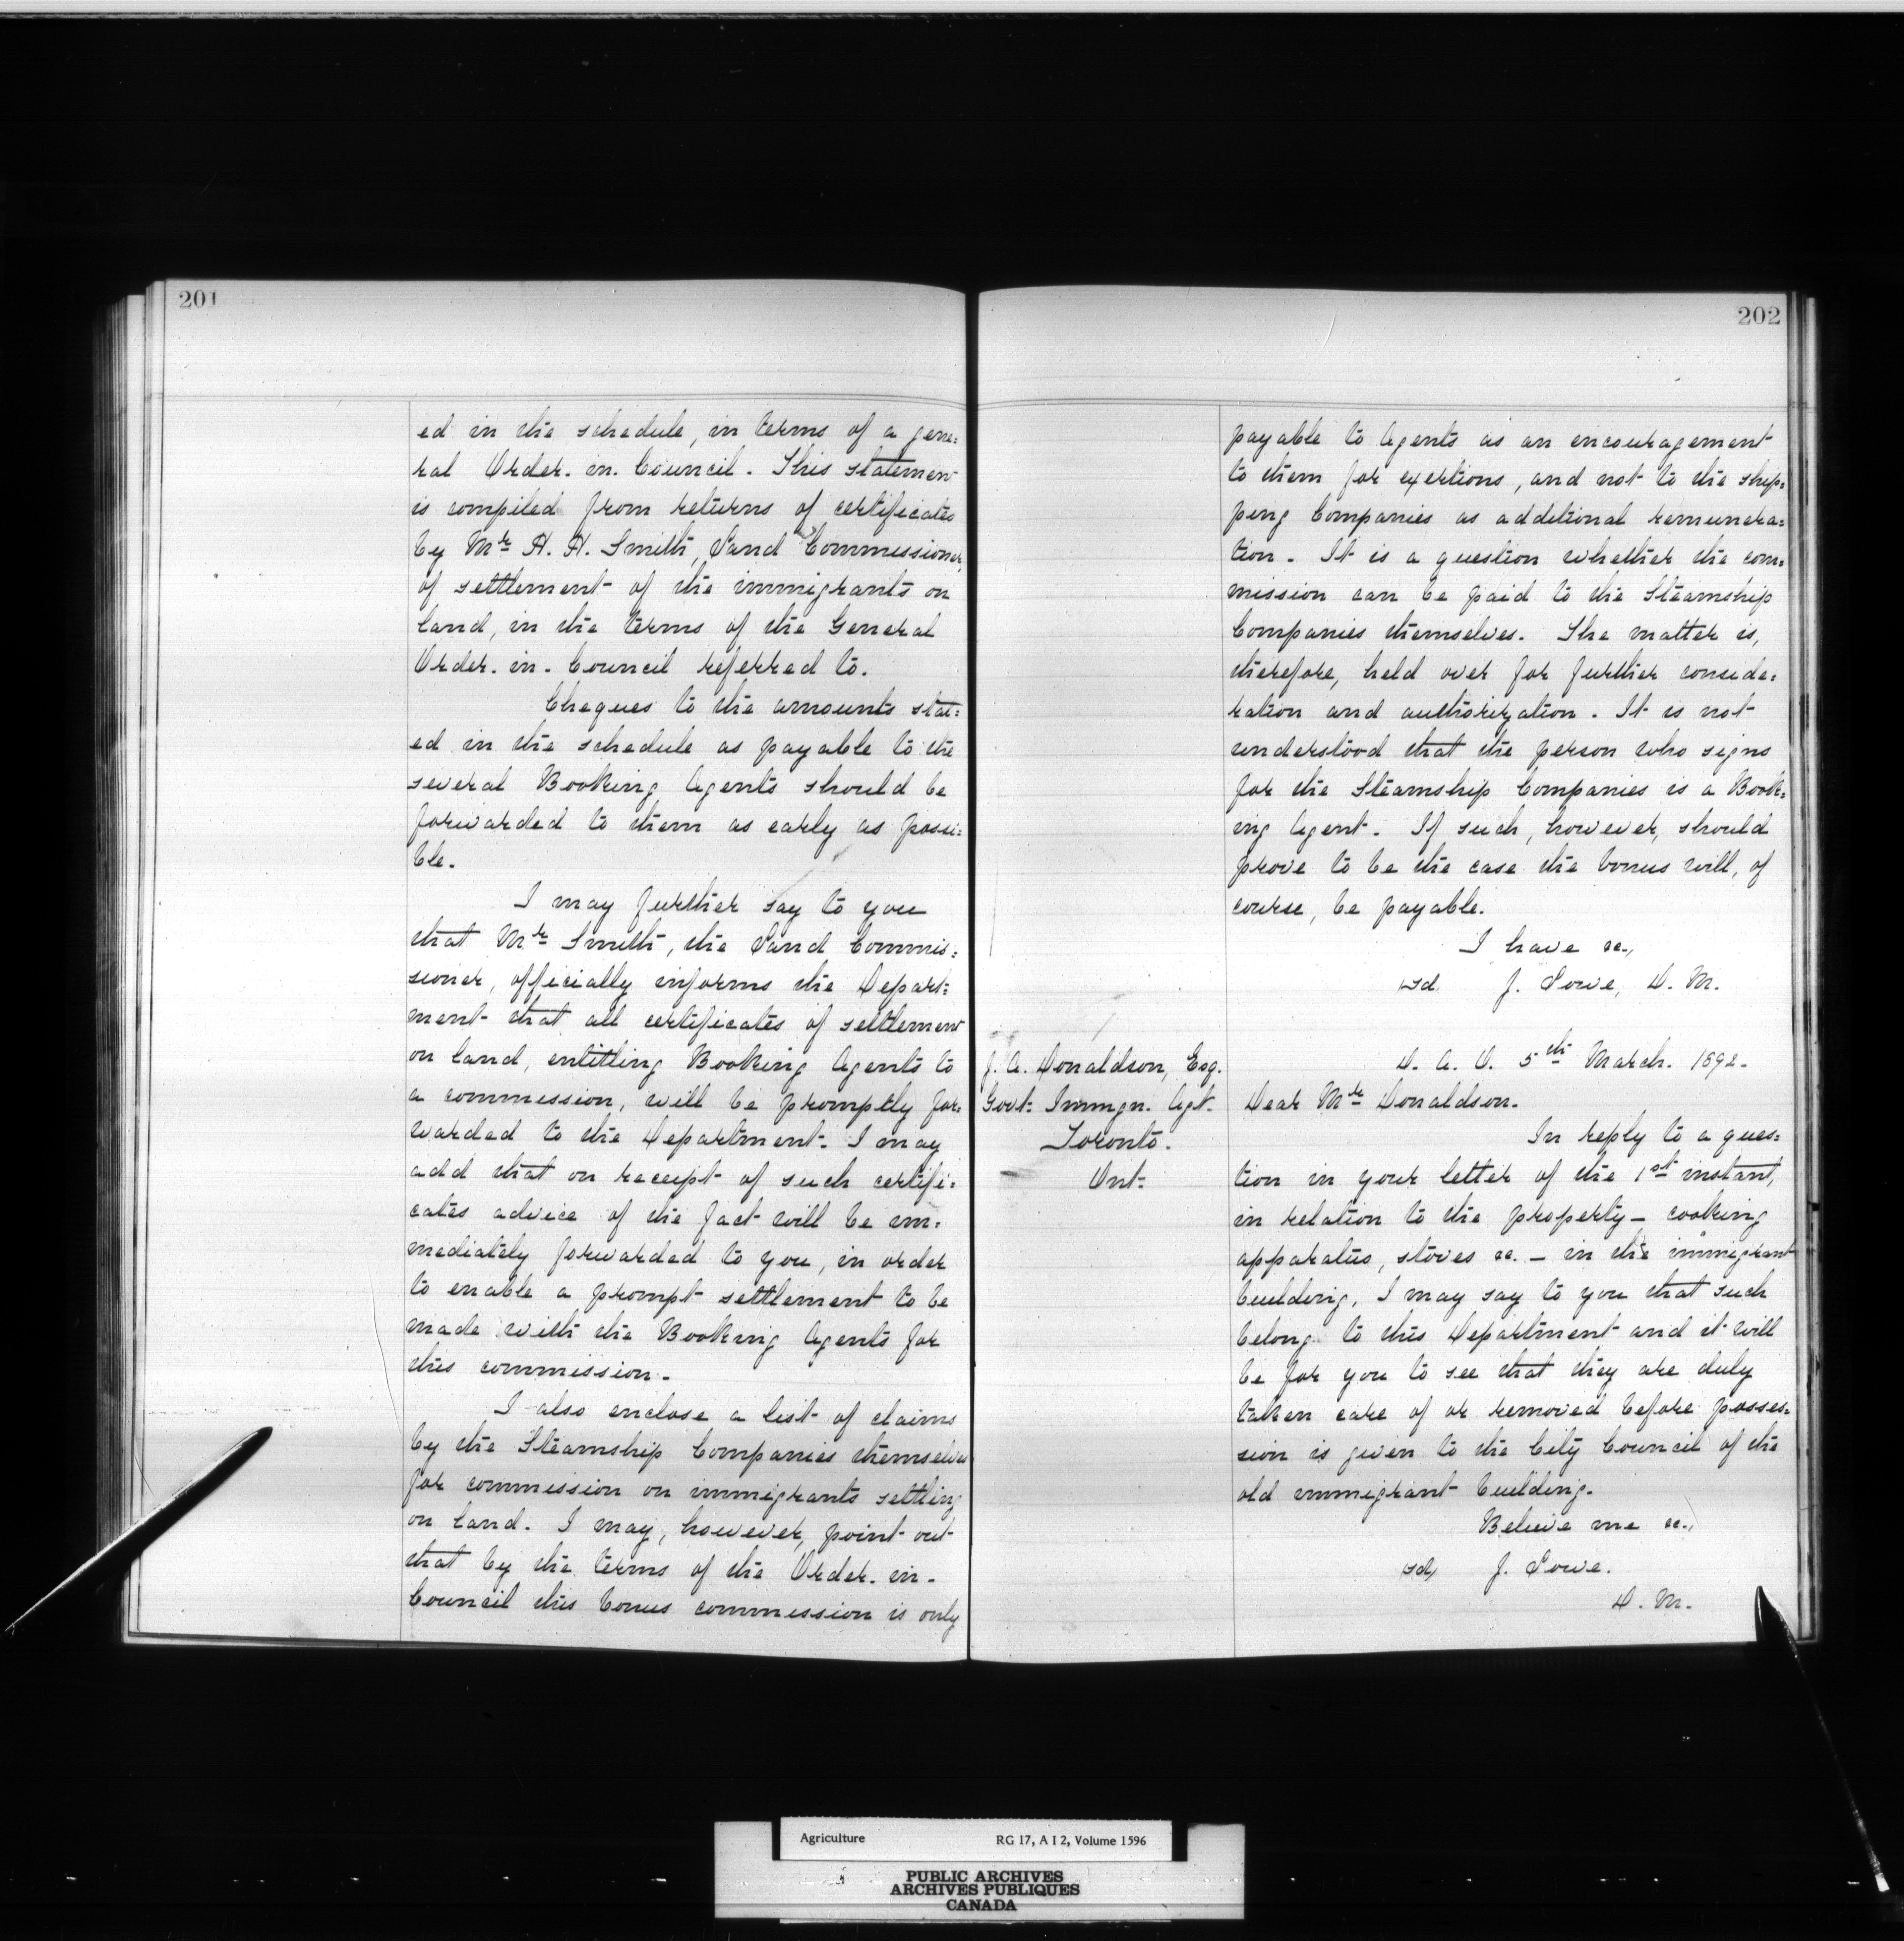 201
ed in the schedule, in terms of a gene=
ral Order. in. Council. This statement
is compiled from returns of certificates
by Mr H. H. Smith, Land Commissioner,
of settlement of the immigrants on
land, in the terms of the General
Order. in. Council referred to.
Cheques to the amounts stat=
ed in the schedule as payable to the
several Booking Agents should be
forwarded to them as early as possi=
ble.
I may further say to you
that Mr Smith, the Land Commis=
sioner, officially informs the Depart=
ment that all certificates of settlement
on land, entitling Booking Agents to
a commission, will be promptly for=
warded to the Department. I may
add that on receipt of such certifi=
cates advice of the fact will be im=
mediately forwarded to you, in order
to enable a prompt settlement to be
made with the Booking Agents for
this commission.
I also enclose a list of claims
by the Steamship Companies themselves
for commission on immigrants settling
on land. I may, however, point out
that by the terms of the Order. in.
Council this bonus commission is only
202
payable to Agents as an encouragement
to them for exertions, and not to the ship=
ping Companies as additional remunera=
tion. It is a question whether the com=
mission can be paid to the Steamship
Companies themselves. The matter is,
therefore, held over for further conside=
ration and authorization. It is not
understood that the person who signs
for the Steamship Companies is a Book=
ing Agent. If such, however, should
prove to be the case the bonus will, of
course, be payable.
I have &c.,
sd. J. Lowe, D. M.
J. A. Donaldson, Esq.
Govt. Immgn. Agt.
Toronto.
Ont.
D. A. O. 5th March. 1892.
Dear Mr Donaldson.
In reply to a ques=
tion in your letter of the 1st instant,
in relation to the property — cooking
apparatus, stoves &c. — in the immigrant
building, I may say to you that such
belong to this Department and it will
be for you to see that they are duly
taken care of or removed before posses=
sion is given to the City Council of the
old immigrant building.
Believe me &c.,
sd, J. Lowe.
D. M.
Agriculture RG 17, A I 2, Volume 1596
PUBLIC ARCHIVES
ARCHIVES PUBLIQUES
CANADA